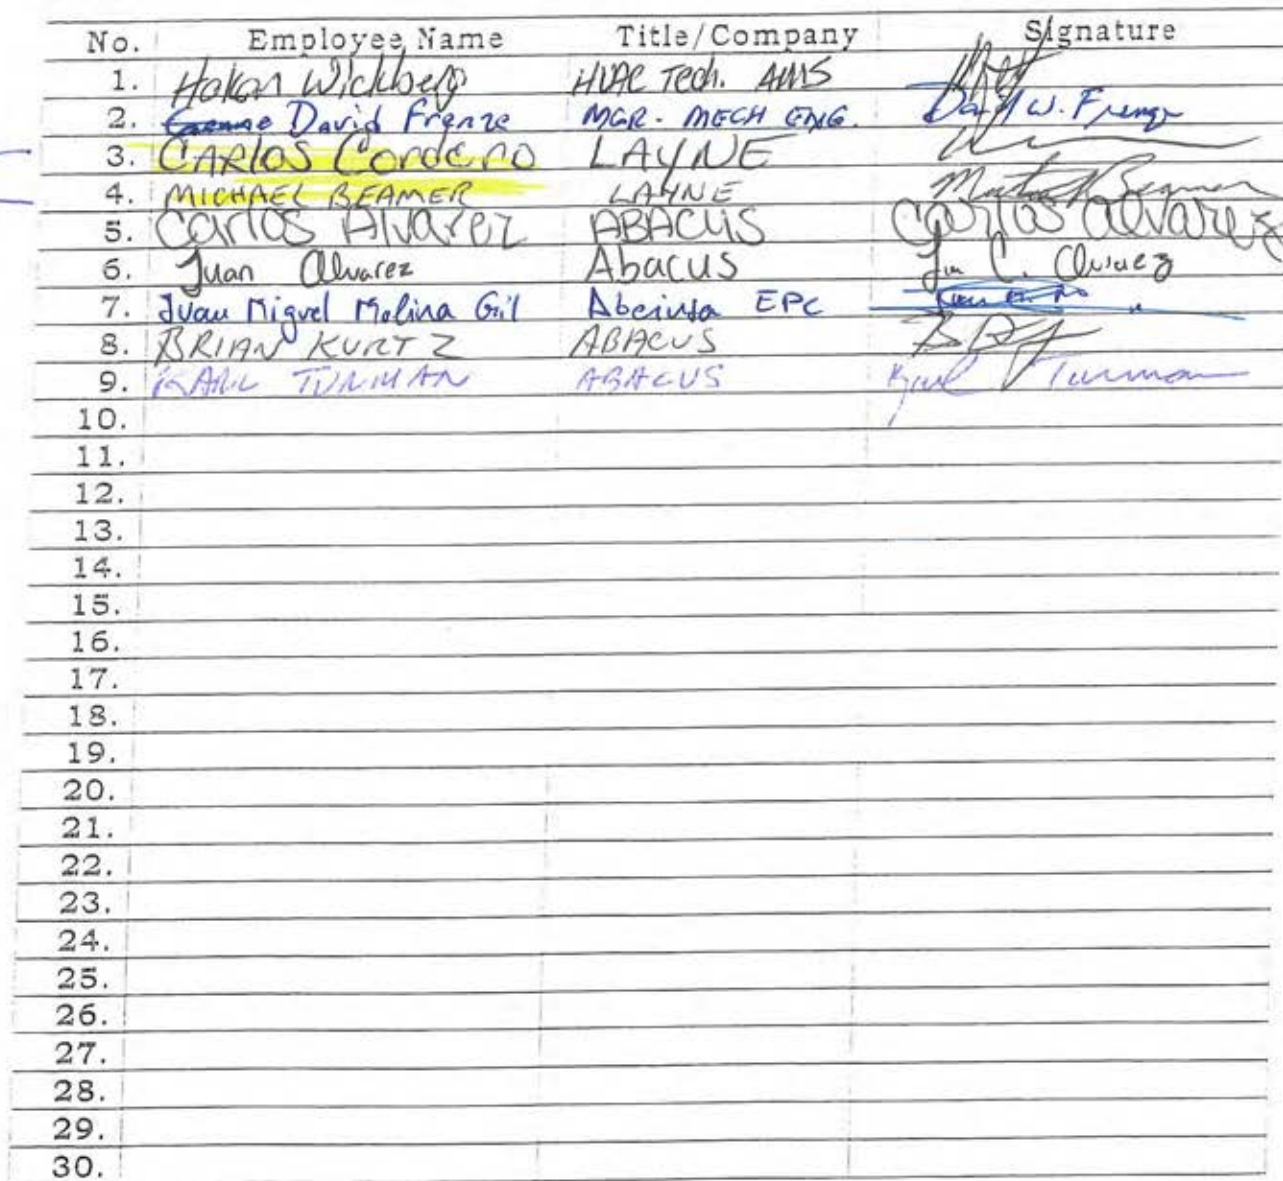 No. Employee Name Title/Company Signature
1. Hakan Wickberg HVAC Tech. AMS
2. David Frenze MGR. MECH ENG. David W. Frenze
3. CARlos Cordero LAYNE
4. MICHAEL BEAMER LAYNE Michael Beamer
5. Carlos Alvarez ABACUS Carlos Alvarez
6. Juan Alvarez Abacus Juan C. Alvarez
7. Juan Miguel Molina Gil Abeinsa EPC
8. BRIAN KURTZ ABACUS
9. KARL TURMAN ABACUS Karl Turman
10.
11.
12.
13.
14.
15.
16.
17.
18.
19.
20.
21.
22.
23.
24.
25.
26.
27.
28.
29.
30.